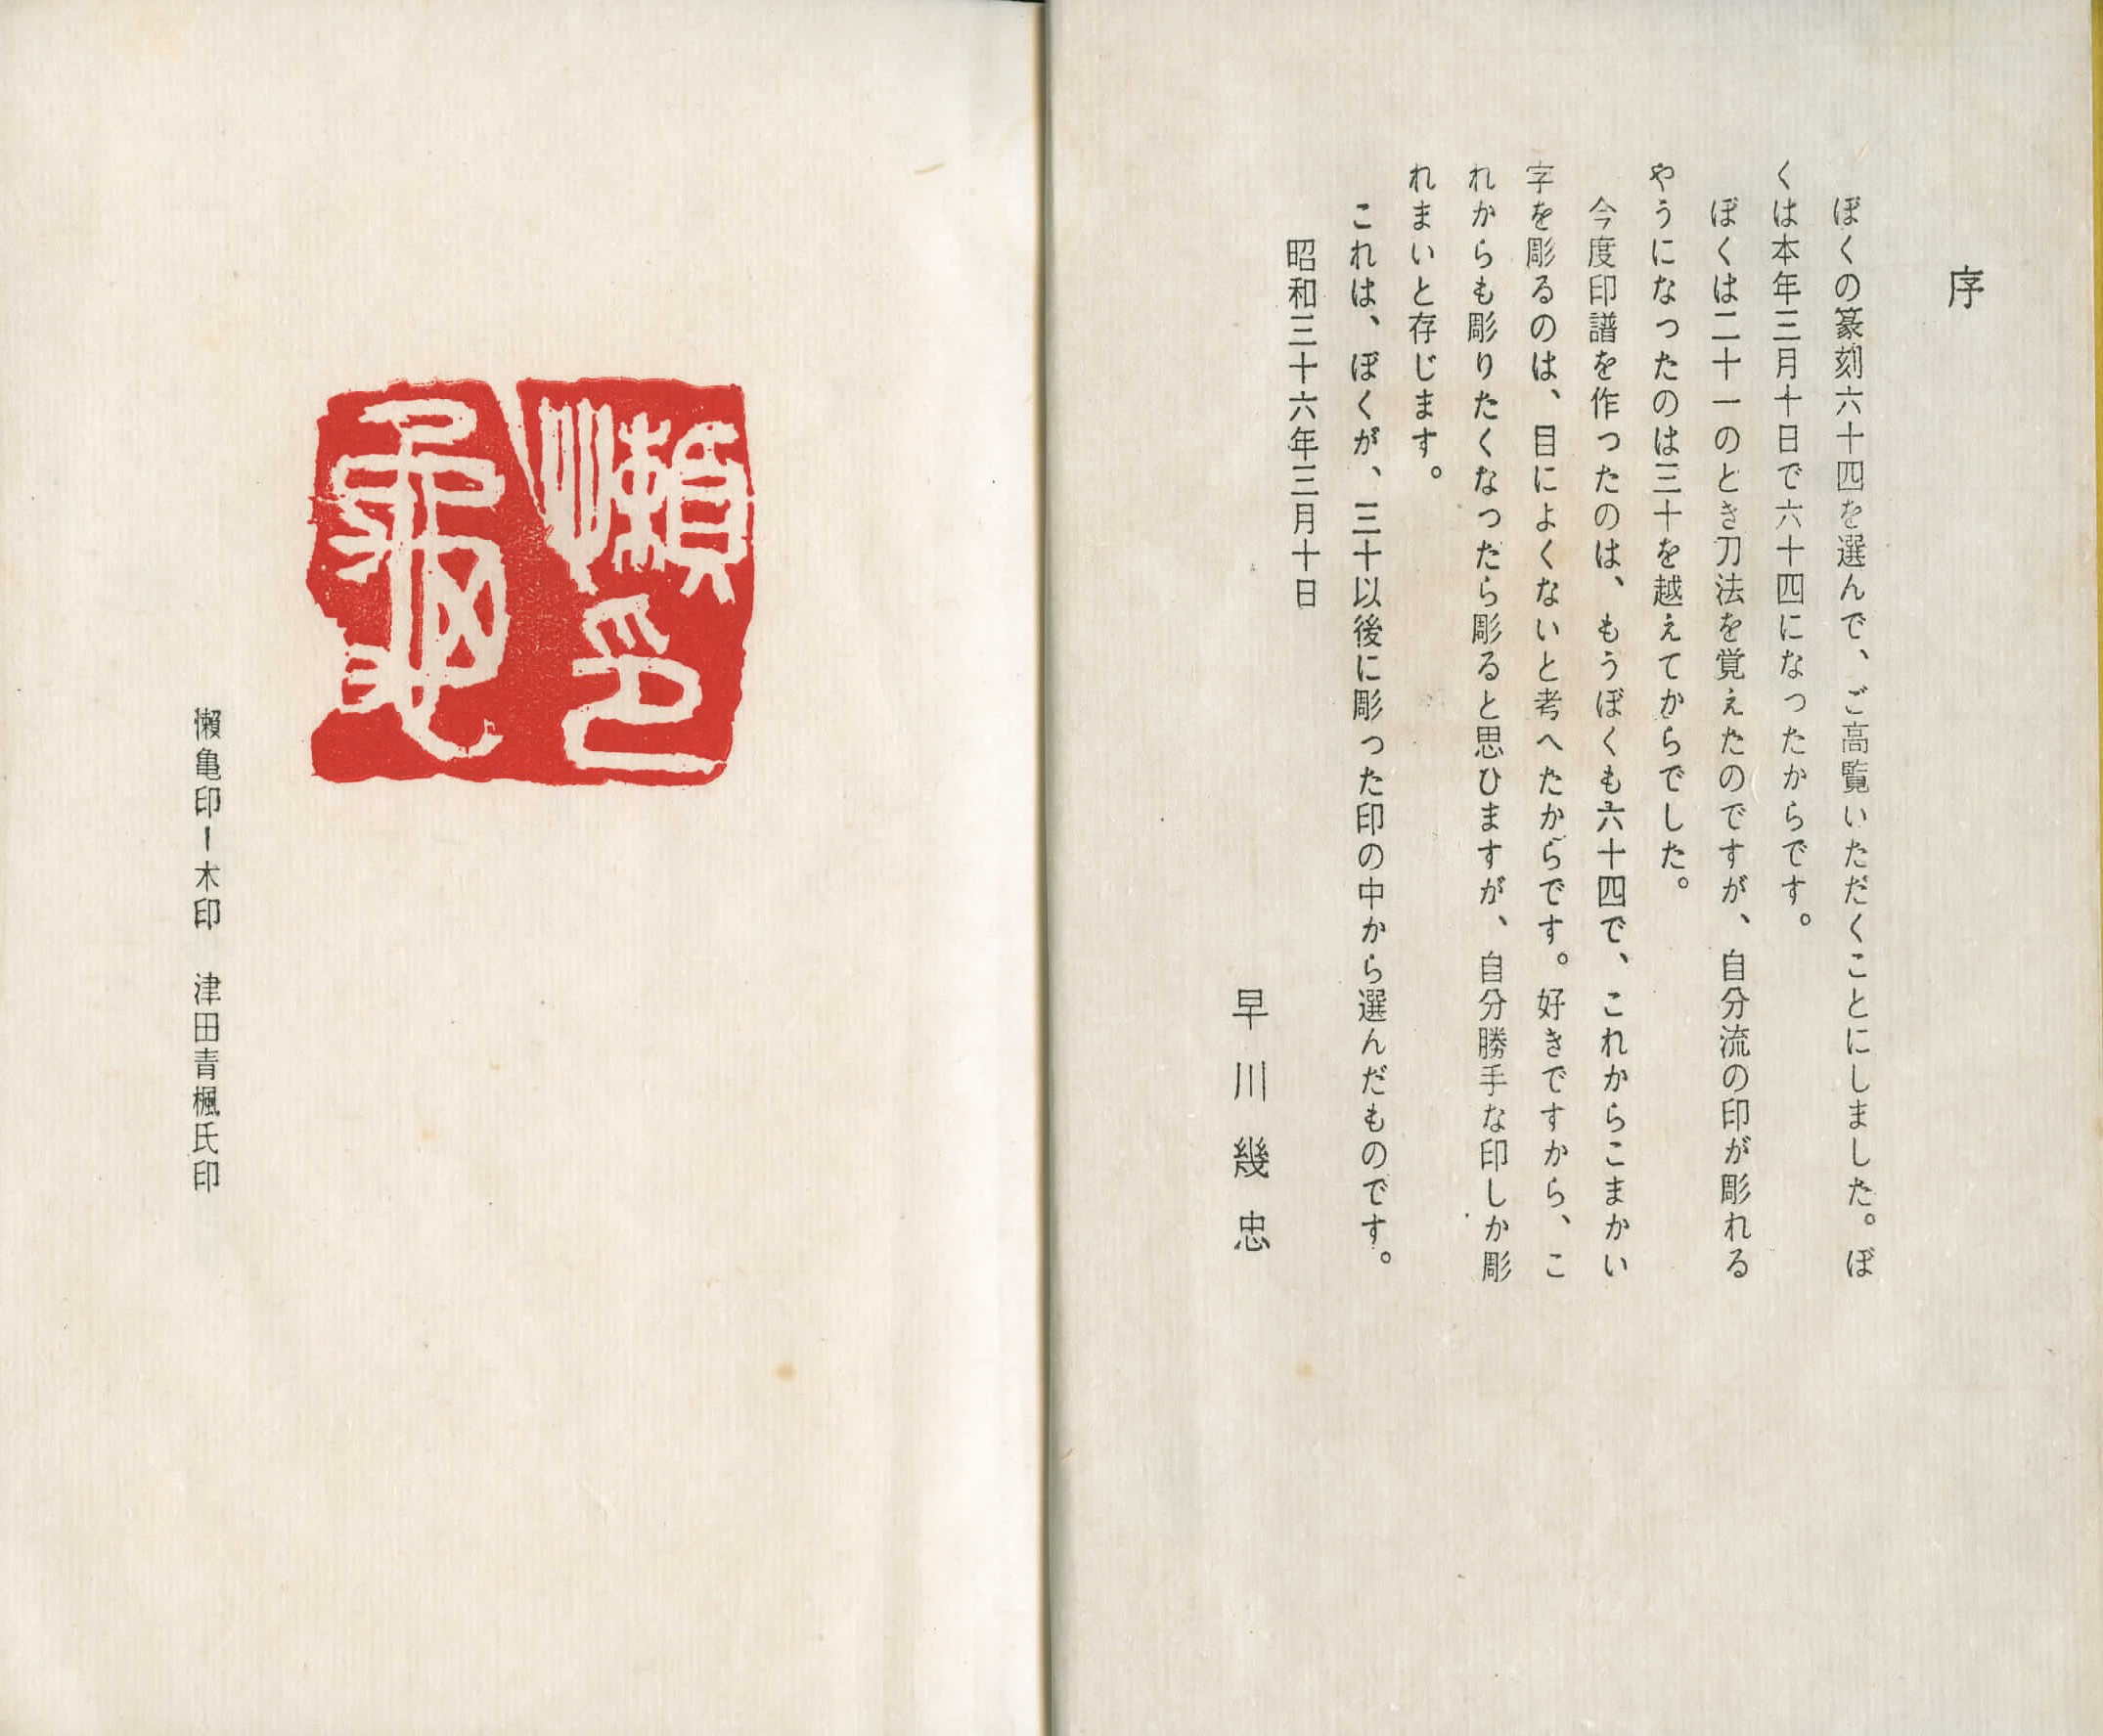 序
ぼくの篆刻六十四を選んで、ご高覧いただくことにしました。ぼ
くは本年三月十日で六十四になったからです。
ぼくは二十一のとき刀法を覚えたのですが、自分流の印が彫れる
やうになったのは三十を越えてからでした。
今度印譜を作ったのは、もうぼくも六十四で、これからこまかい
字を彫るのは、目によくないと考へたからです。好きですから、こ
れからも彫りたくなったら彫ると思ひますが、自分勝手な印しか彫
れまいと存じます。
これは、ぼくが、三十以後に彫った印の中から選んだものです。
昭和三十六年三月十日
早川幾忠
懶印
亀
懶亀印ー木印　津田青楓氏印